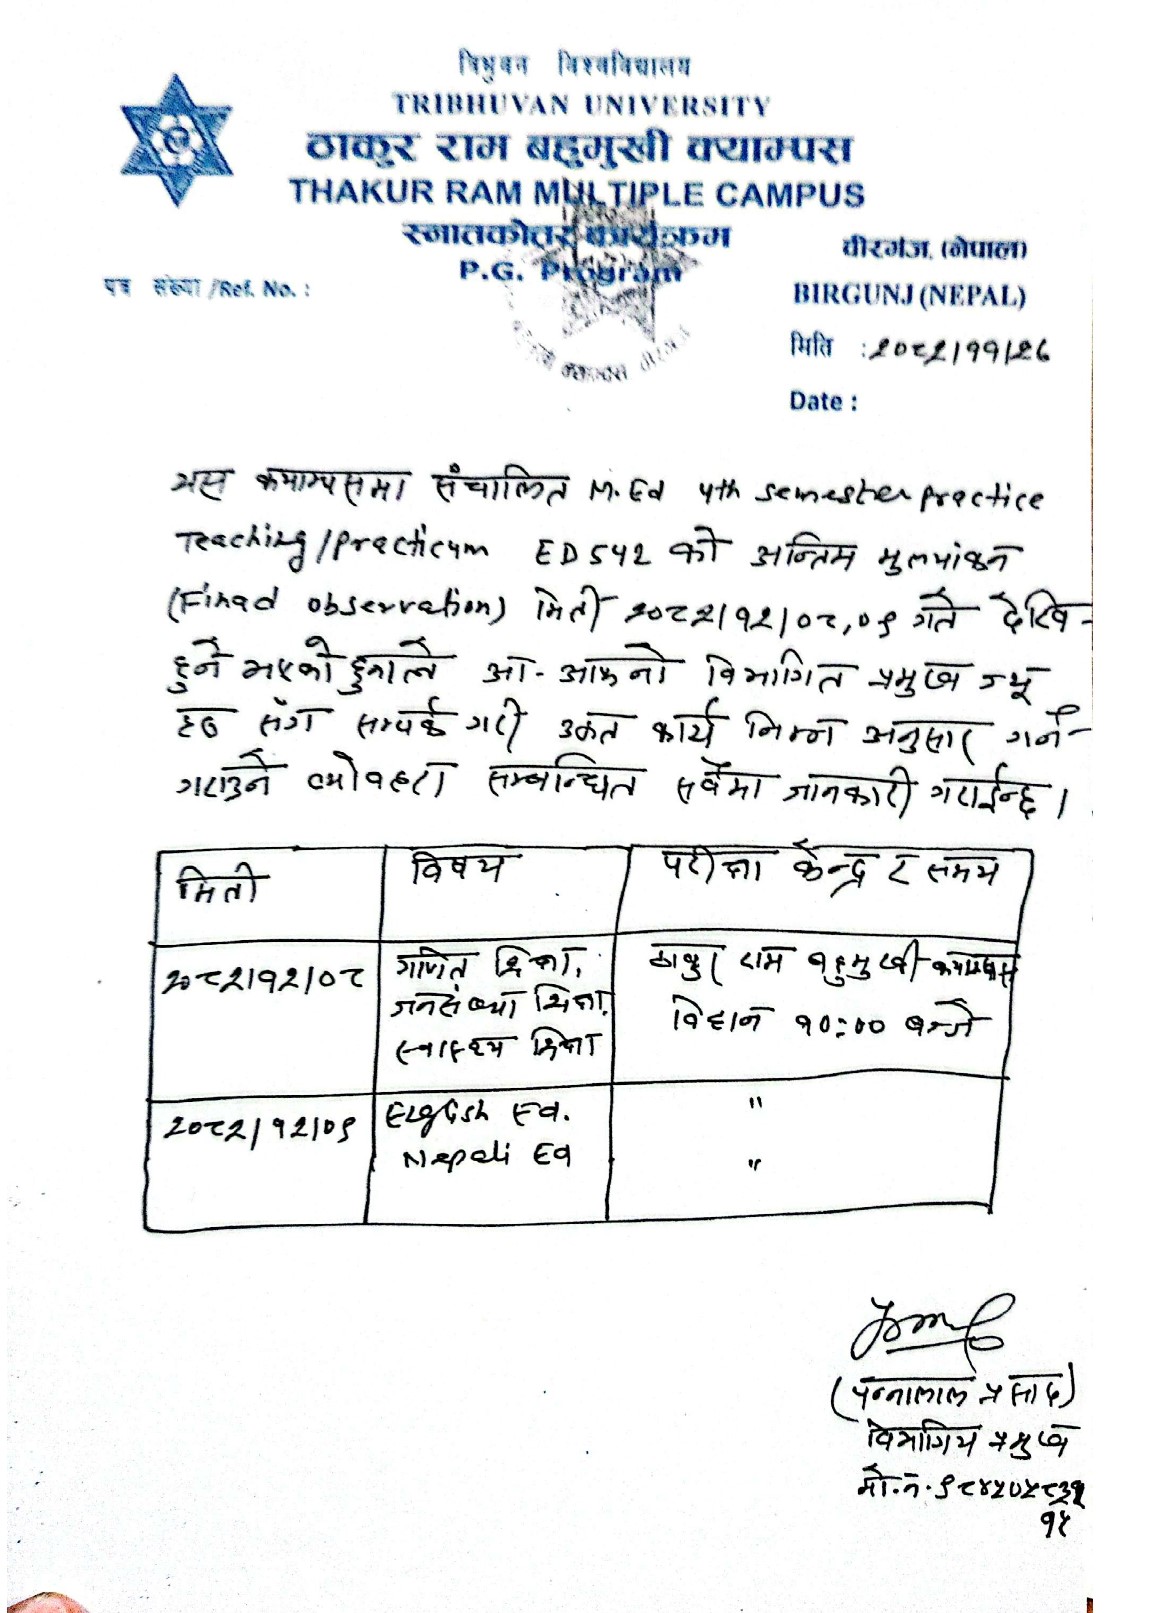 त्रिभुवन विश्वविद्यालय
TRIBHUVAN UNIVERSITY
ठाकुर राम बहुमुखी क्याम्पस
THAKUR RAM MULTIPLE CAMPUS
स्नातकोत्तर कार्यक्रम
P.G. Program
वीरगंज, (नेपाल)
पत्र संख्या /Ref. No. :
BIRGUNJ (NEPAL)
मिति : २०८२/११/२६
Date :
यस क्याम्पसमा संचालित M.Ed 4th semester practice
Teaching/practicum ED 542 को अन्तिम मुल्यांकन
(Finad observation) मिती २०८२/१२/०८,०९ गते देखि
हुने भएको हुनाले आ-आफ्नो विभागित प्रमुख ज्यू
हरु सँग सम्पर्क गरी उक्त कार्य निम्न अनुसार गर्न
गराउने व्योवहरा सम्बन्धित सवैमा जानकारी गराईन्छ ।
मिती विषय परीक्षा केन्द्र र समय
२०८२/१२/०८ गणित शिक्षा, ठाकुर राम बहुमुखी क्याम्पस
जनसंख्या शिक्षा, विहान १०:०० बजे
स्वास्थ्य शिक्षा
२०८२/१२/०९ English Ed. "
Nepali Ed "
(पन्नालाल प्रसाद)
विभागिय प्रमुख
मो.न.